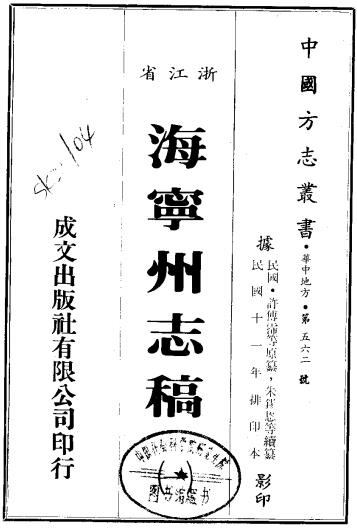 中國方志叢書・華中地方・第五六二號
據民國・許傅霈等原纂，朱錫恩等續纂
民國十一年排印本影印
浙江省
海寧州志稿
成文出版社有限公司印行
图书清罄书